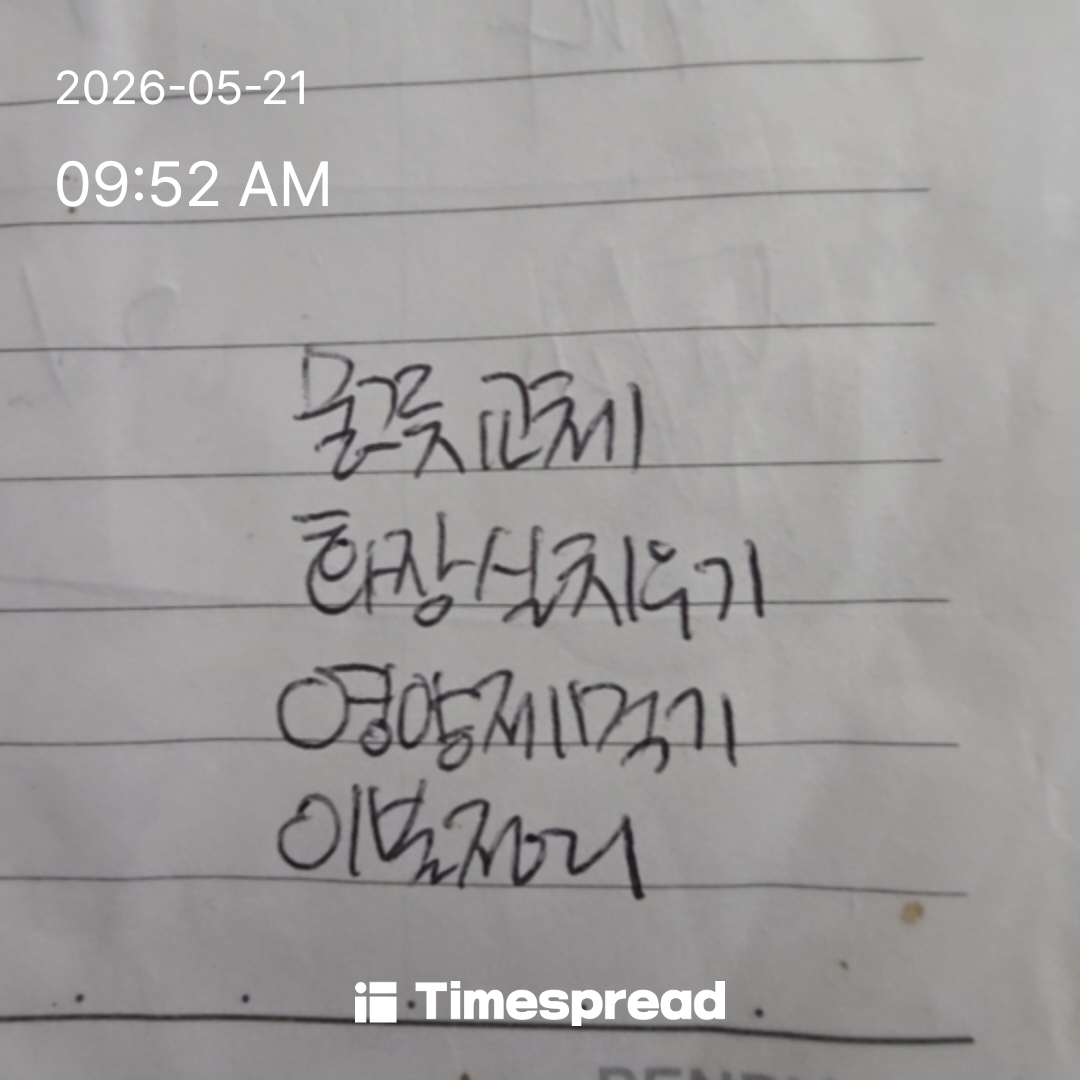 2026-05-21
09:52 AM
물그릇 교체
화장실 치우기
영양제 먹기
이불정리
Timespread